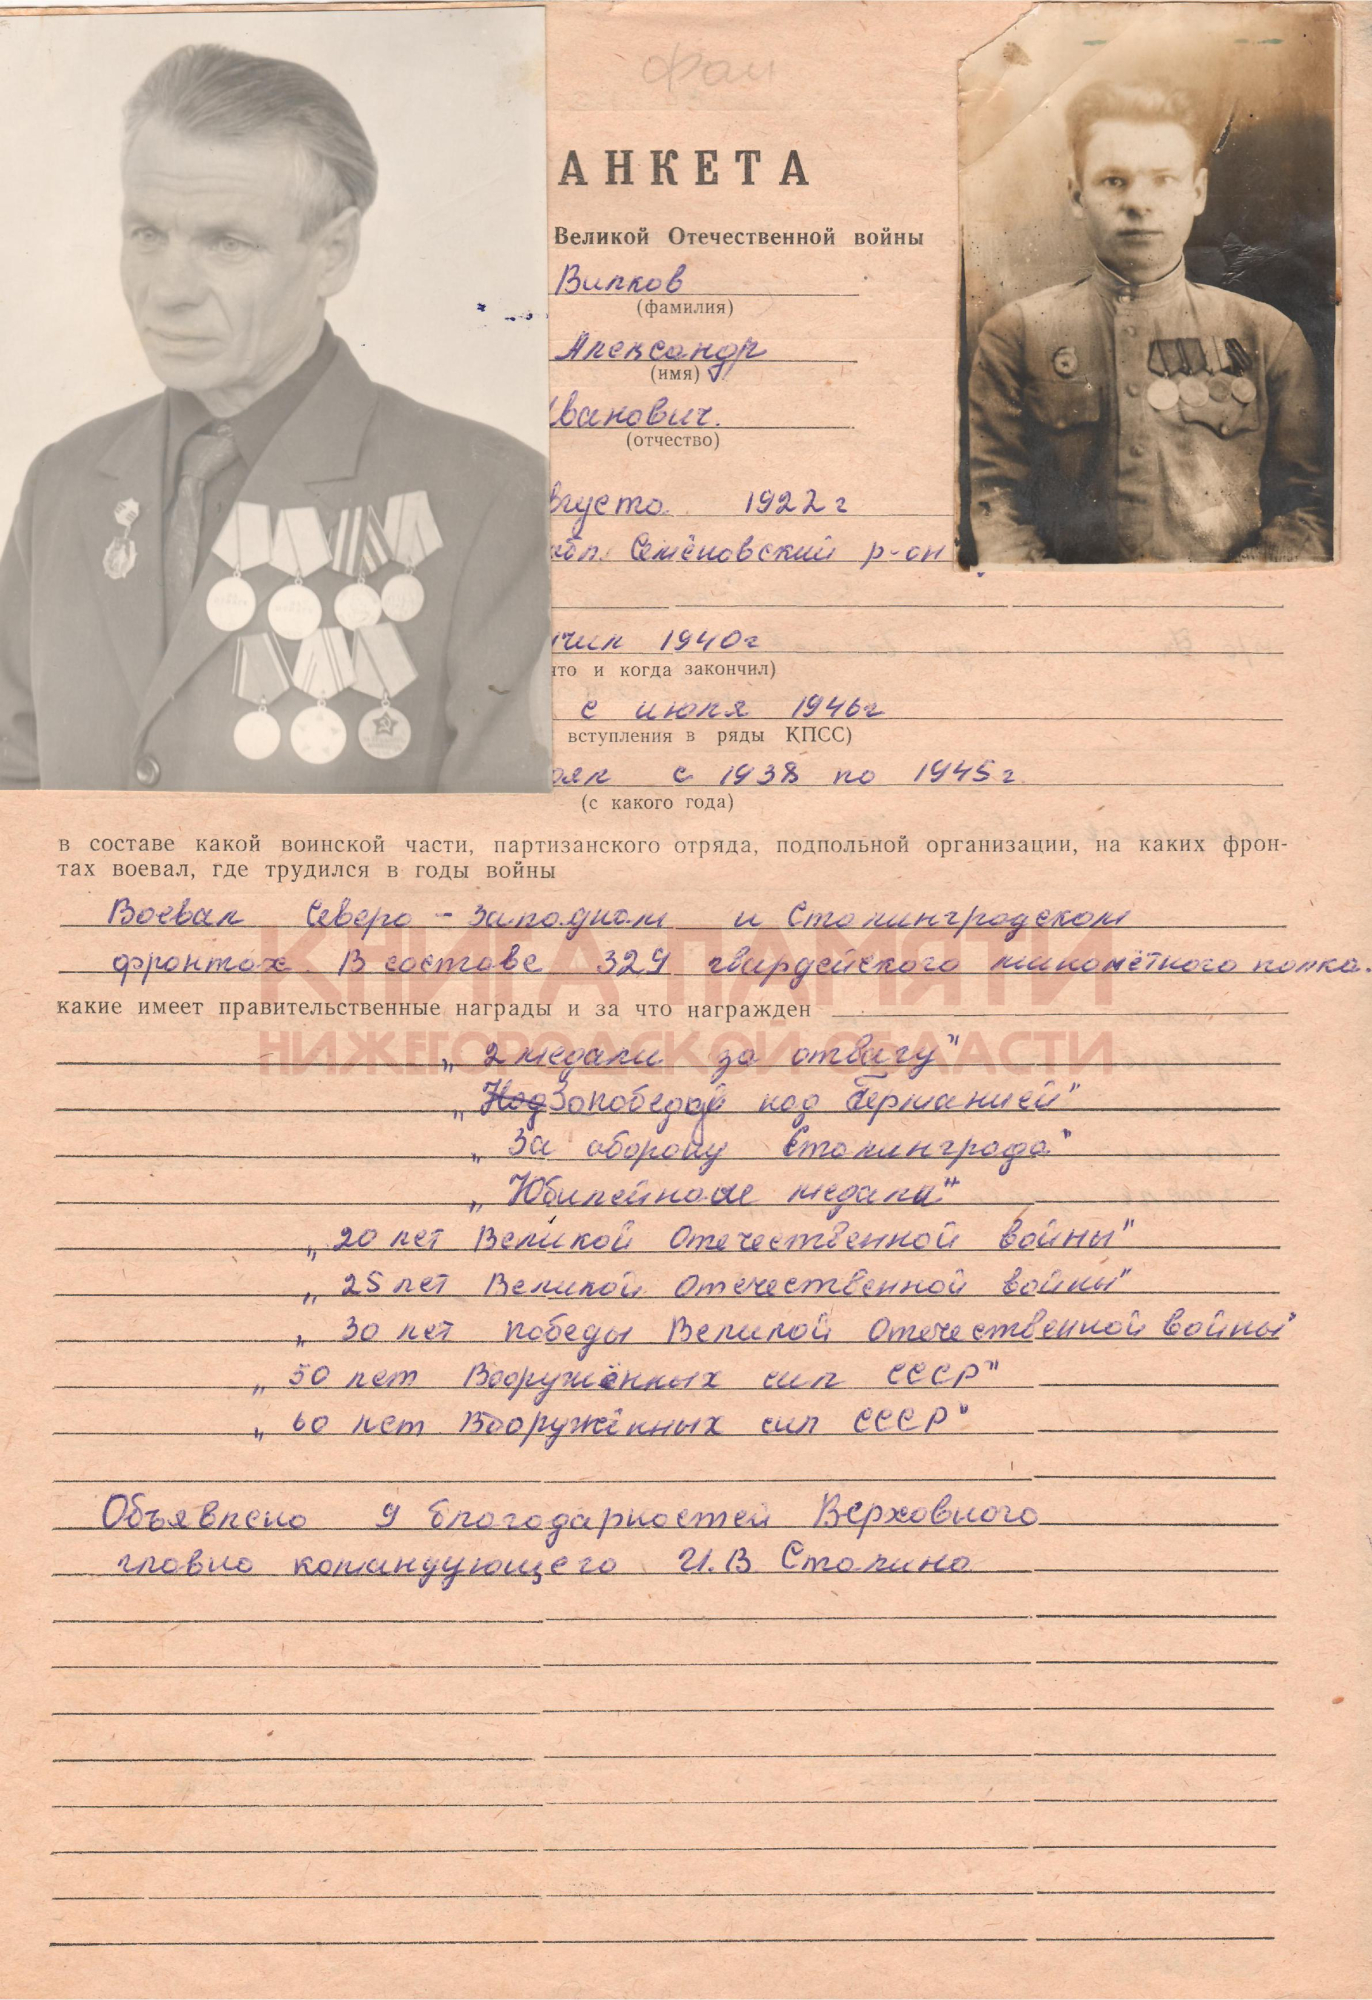 фот
АНКЕТА
Великой Отечественной войны
Вилков
(фамилия)
Александр
(имя)
Иванович.
(отчество)
вгуста 1922 г
обл. Семёновский р-он
чил 1940 г
что и когда закончил)
с июля 1946 г
вступления в ряды КПСС)
оял с 1938 по 1945 г.
(с какого года)
в составе какой воинской части, партизанского отряда, подпольной организации, на каких фрон-
тах воевал, где трудился в годы войны
Воевал Северо-Западном и Сталинградском
фронтах. В составе 329 гвардейского миномётного полка.
КНИГА ПАМЯТИ
какие имеет правительственные награды и за что награжден
НИЖЕГОРОДСКОЙ ОБЛАСТИ
„2 медали за отвагу"
„Над За победой над Германией"
„За оборону Сталинграда"
„Юбилейные медали"
„20 лет Великой Отечественной войны"
„25 лет Великой Отечественной войны"
„30 лет победы Великой Отечественной войны"
„50 лет Вооружённых сил СССР"
„60 лет Вооружённых сил СССР"
Объявлено 9 благодарностей Верховного
главно командующего И.В. Сталина